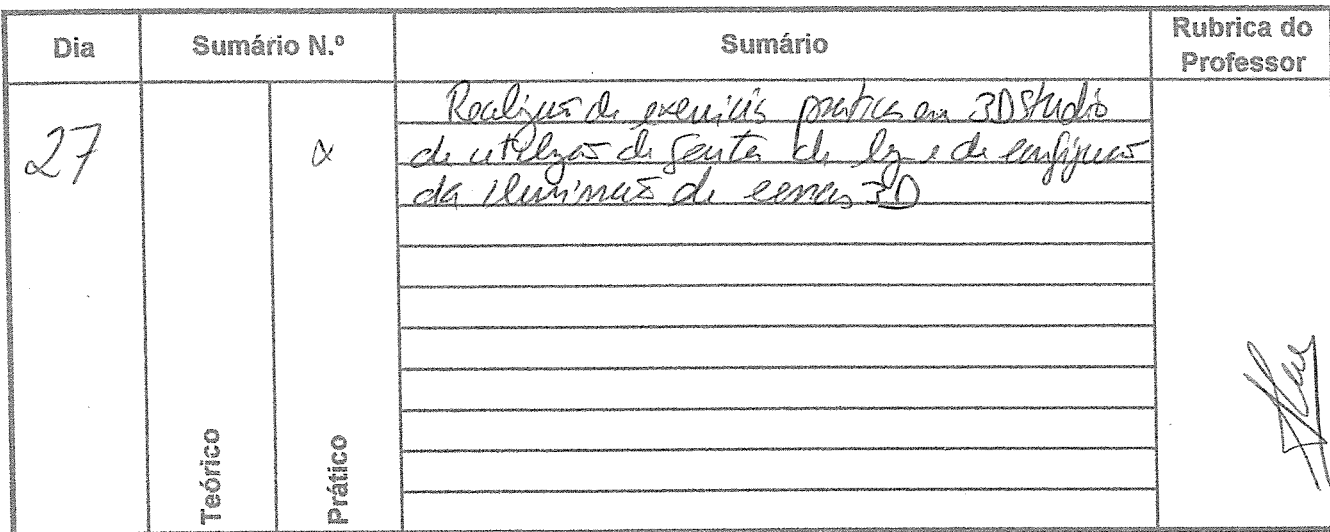 Dia
Sumário N.º
Sumário
Rubrica do
Professor
27
x
Realização de exercícios práticos em 3D Studio
de utilização de fontes de luz e de configuração
da iluminação de cenas 3D
Teórico
Prático